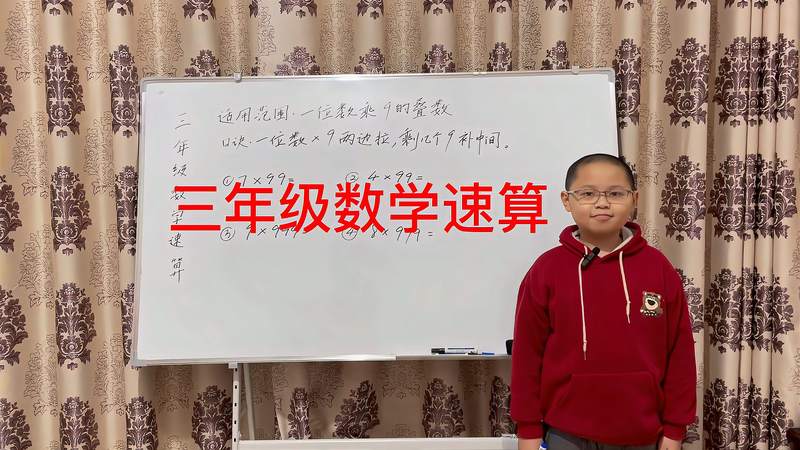 三年级数学速算
适用范围:一位数乘9的叠数
口诀:一位数×9两边拉,剩几个9补中间。
① 7×99= ② 4×99=
③ 9×999= ④ 8×999=
三年级数学速算